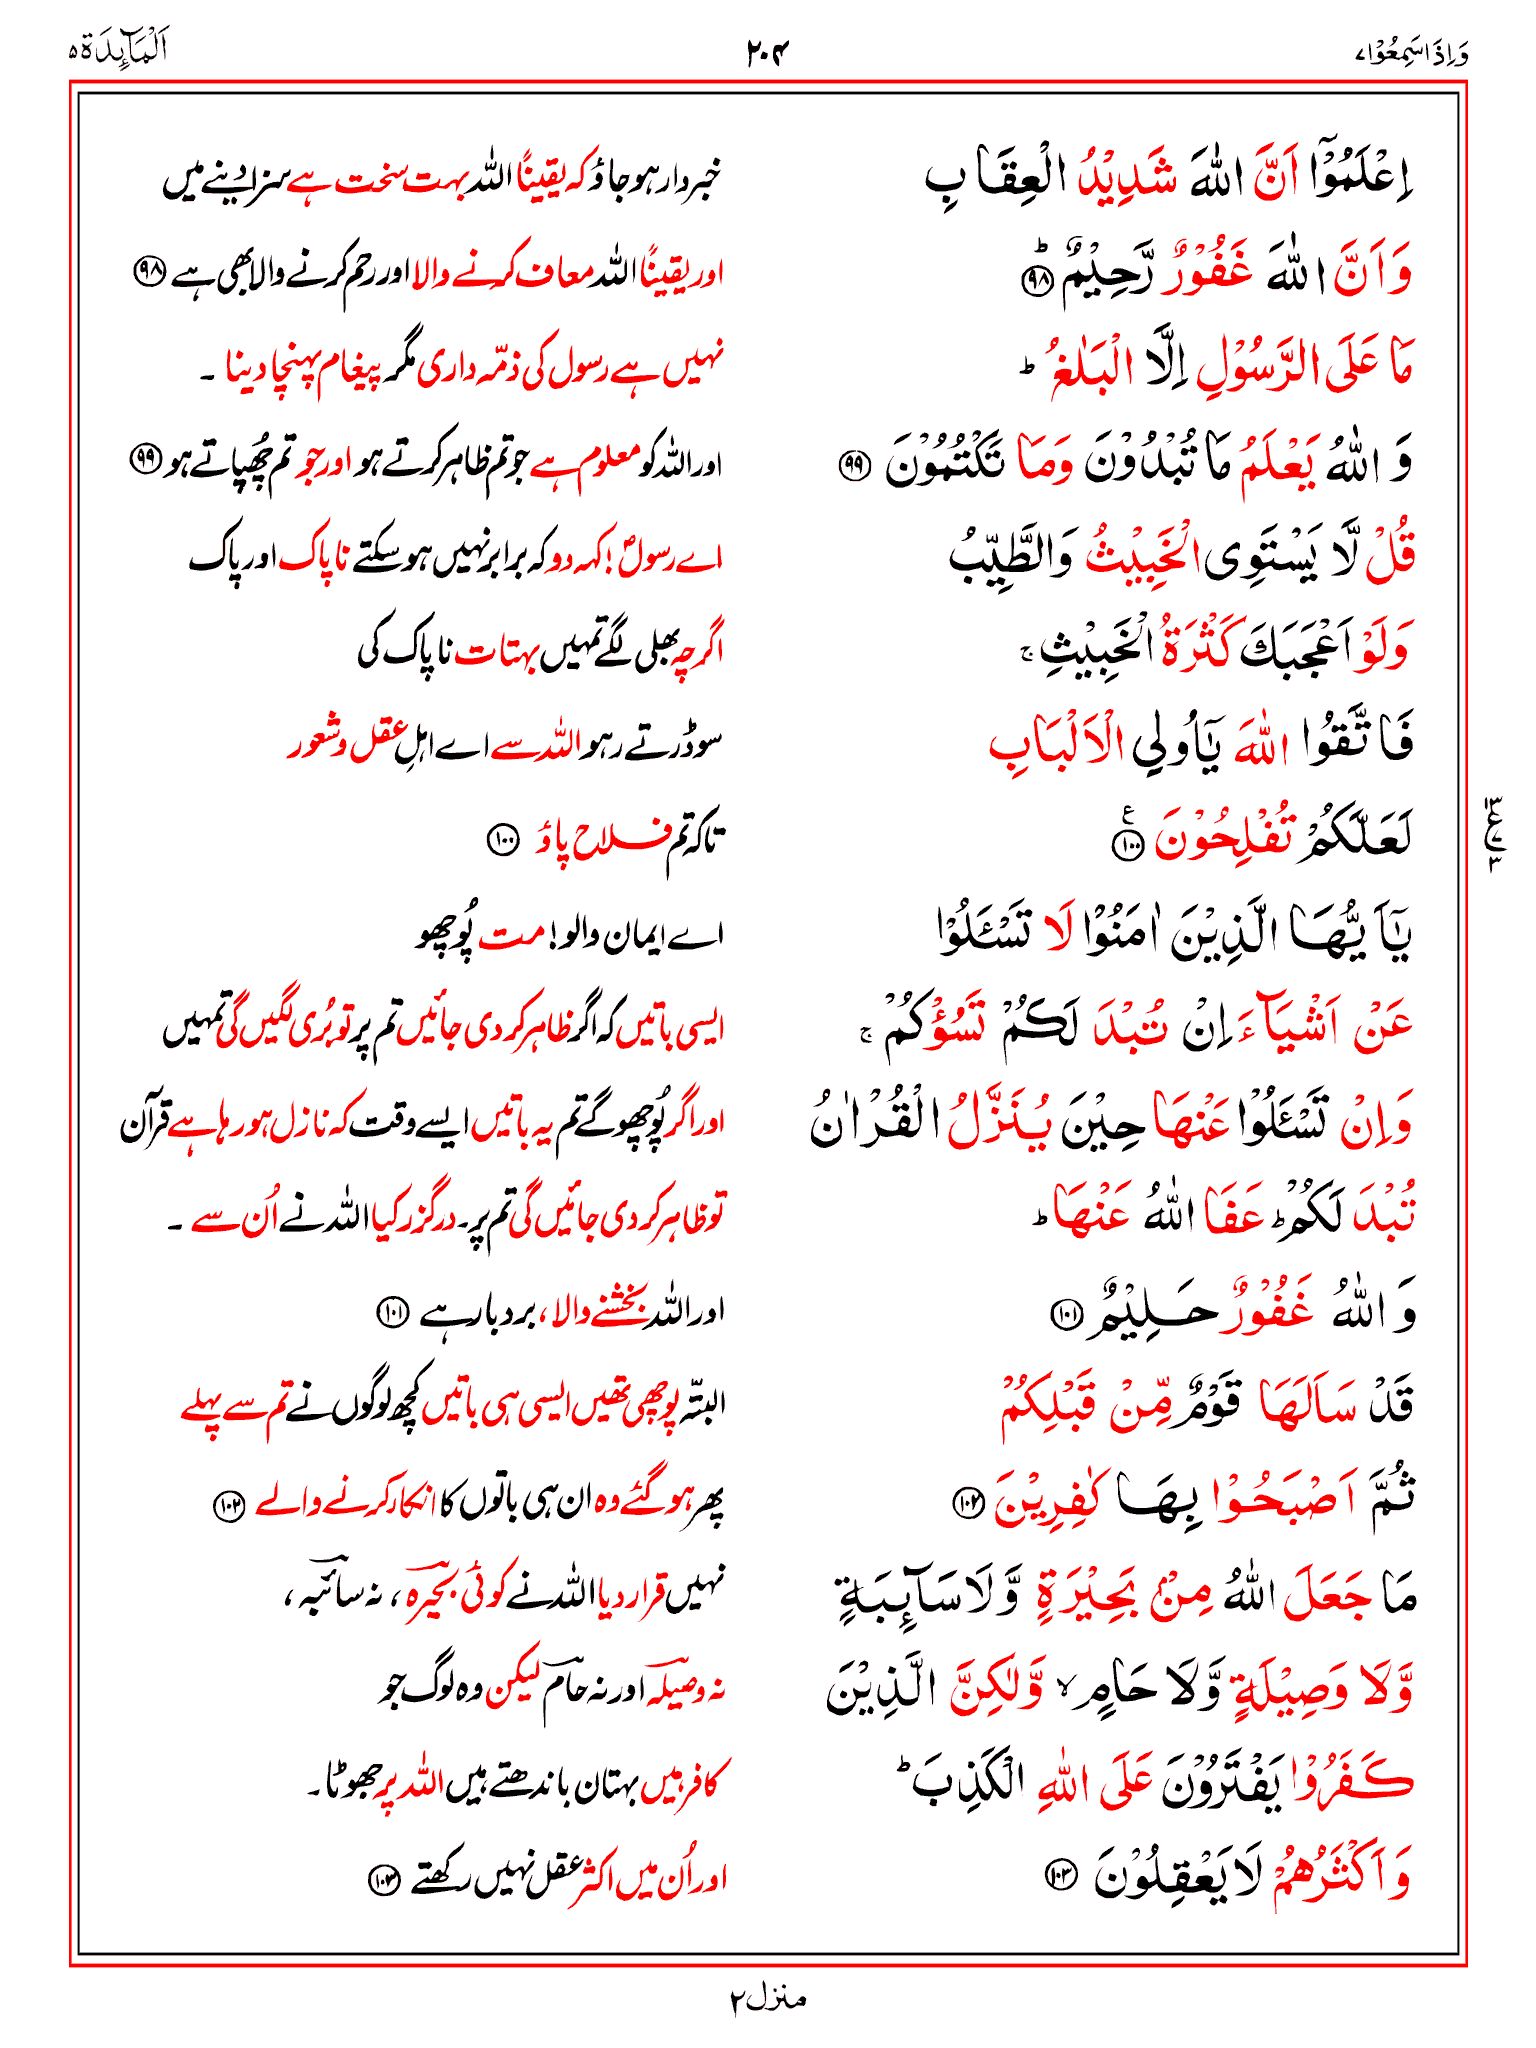 وَاِذَا سَمِعُوْا ۷
۲۰۴
اَلْمَآئِدَة ۵
اِعْلَمُوْٓا اَنَّ اللّٰهَ شَدِيْدُ الْعِقَابِ
خبردار ہوجاؤ کہ یقیناً اللہ بہت سخت ہے سزا دینے میں
وَاَنَّ اللّٰهَ غَفُوْرٌ رَّحِيْمٌ ؕ ۹۸
اور یقیناً اللہ معاف کرنے والا اور رحم کرنے والا بھی ہے ۹۸
مَا عَلَى الرَّسُوْلِ اِلَّا الْبَلٰغُ ؕ
نہیں ہے رسول کی ذمّہ داری مگر پیغام پہنچا دینا ۔
وَ اللّٰهُ يَعْلَمُ مَا تُبْدُوْنَ وَمَا تَكْتُمُوْنَ ۹۹
اور اللہ کو معلوم ہے جو تم ظاہر کرتے ہو اور جو تم چُھپاتے ہو ۹۹
قُلْ لَّا يَسْتَوِى الْخَبِيْثُ وَالطَّيِّبُ
اے رسولؐ! کہہ دو کہ برابر نہیں ہوسکتے ناپاک اور پاک
وَلَوْ اَعْجَبَكَ كَثْرَةُ الْخَبِيْثِ ۚ
اگرچہ بھلی لگے تمہیں بہتات ناپاک کی
فَاتَّقُوا اللّٰهَ يٰٓاُولِى الْاَلْبَابِ
سو ڈرتے رہو اللہ سے اے اہلِ عقل و شعور
لَعَلَّكُمْ تُفْلِحُوْنَ ۱۰۰ ع
تاکہ تم فلاح پاؤ ۱۰۰
۳ ع ۳
يٰٓاَيُّهَا الَّذِيْنَ اٰمَنُوْا لَا تَسْـَٔلُوْا
اے ایمان والو! مت پُوچھو
عَنْ اَشْيَآءَ اِنْ تُبْدَ لَكُمْ تَسُؤْكُمْ ۚ
ایسی باتیں کہ اگر ظاہر کردی جائیں تم پر تو بُری لگیں گی تمہیں
وَاِنْ تَسْـَٔلُوْا عَنْهَا حِيْنَ يُنَزَّلُ الْقُرْاٰنُ
اور اگر پُوچھو گے تم یہ باتیں ایسے وقت کہ نازل ہو رہا ہے قرآن
تُبْدَ لَكُمْ ؕ عَفَا اللّٰهُ عَنْهَا ؕ
تو ظاہر کردی جائیں گی تم پر۔ درگزر کیا اللہ نے اُن سے ۔
وَ اللّٰهُ غَفُوْرٌ حَلِيْمٌ ۱۰۱
اور اللہ بخشنے والا، بردبار ہے ۱۰۱
قَدْ سَاَلَهَا قَوْمٌ مِّنْ قَبْلِكُمْ
البتّہ پوچھی تھیں ایسی ہی باتیں کچھ لوگوں نے تم سے پہلے
ثُمَّ اَصْبَحُوْا بِهَا كٰفِرِيْنَ ۱۰۲
پھر ہوگئے وہ ان ہی باتوں کا انکار کرنے والے ۱۰۲
مَا جَعَلَ اللّٰهُ مِنْۢ بَحِيْرَةٍ وَّلَا سَآئِبَةٍ
نہیں قرار دیا اللہ نے کوئی بحیرہ، نہ سائبہ،
وَّلَا وَصِيْلَةٍ وَّلَا حَامٍ ۙ وَّلٰكِنَّ الَّذِيْنَ
نہ وصیلہ اور نہ حام لیکن وہ لوگ جو
كَفَرُوْا يَفْتَرُوْنَ عَلَى اللّٰهِ الْكَذِبَ ؕ
کافر ہیں بہتان باندھتے ہیں اللہ پر جھوٹا۔
وَاَكْثَرُهُمْ لَا يَعْقِلُوْنَ ۱۰۳
اور اُن میں اکثر عقل نہیں رکھتے ۱۰۳
منزل ۲